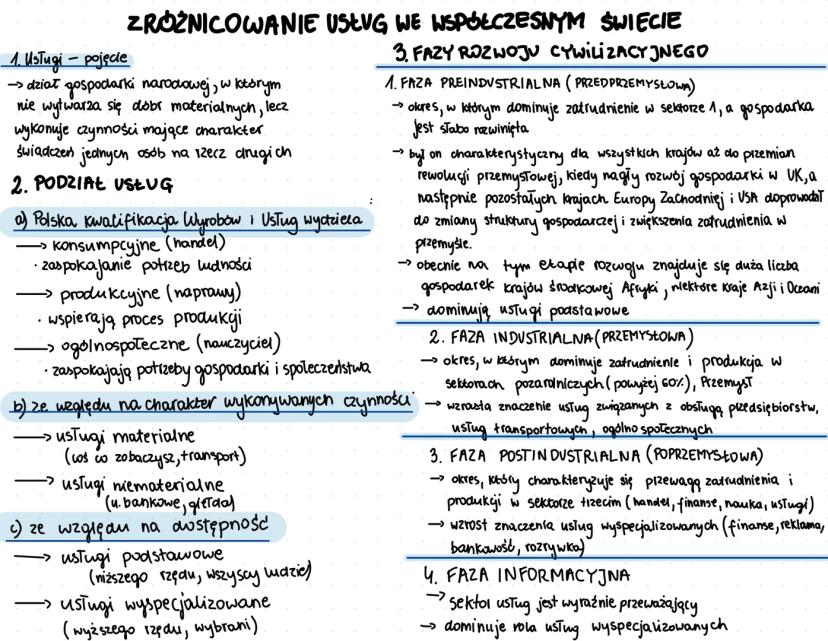 ZRÓŻNICOWANIE USŁUG WE WSPÓŁCZESNYM ŚWIECIE
1. Usługi – pojęcie
→ dział gospodarki narodowej, w którym
nie wytwarza się dóbr materialnych, lecz
wykonuje czynności mające charakter
świadczeń jednych osób na rzecz drugich
2. PODZIAŁ USŁUG
a) Polska Kwalifikacja Wyrobów i Usług wydziela
→ konsumpcyjne (handel)
· zaspokajanie potrzeb ludności
→ produkcyjne (naprawy)
· wspierają proces produkcji
→ ogólnospołeczne (nauczyciel)
· zaspokajają potrzeby gospodarki i społeczeństwa
b) ze względu na charakter wykonywanych czynności
→ usługi materialne
(coś co zobaczysz, transport)
→ usługi niematerialne
(u. bankowe, giełda)
c) ze względu na dostępność
→ usługi podstawowe
(niższego rzędu, wszyscy ludzie)
→ usługi wyspecjalizowane
(wyższego rzędu, wybrani)
3. FAZY ROZWOJU CYWILIZACYJNEGO
1. FAZA PREINDUSTRIALNA (PRZEDPRZEMYSŁOWA)
→ okres, w którym dominuje zatrudnienie w sektorze 1, a gospodarka
jest słabo rozwinięta
→ był on charakterystyczny dla wszystkich krajów aż do przemian
rewolucji przemysłowej, kiedy nagły rozwój gospodarki w UK, a
następnie pozostałych krajach Europy Zachodniej i USA doprowadził
do zmiany struktury gospodarczej i zwiększenia zatrudnienia w
przemyśle.
→ obecnie na tym etapie rozwoju znajduje się duża liczba
gospodarek krajów środkowej Afryki, niektóre kraje Azji i Oceanii
→ dominują usługi podstawowe
2. FAZA INDUSTRIALNA (PRZEMYSŁOWA)
→ okres, w którym dominuje zatrudnienie i produkcja w
sektorach pozarolniczych (powyżej 60%), Przemysł
→ wzrasta znaczenie usług związanych z obsługą przedsiębiorstw,
usług transportowych, ogólno społecznych
3. FAZA POSTINDUSTRIALNA (POPRZEMYSŁOWA)
→ okres, który charakteryzuje się przewagą zatrudnienia i
produkcji w sektorze trzecim (handel, finanse, nauka, usługi)
→ wzrost znaczenia usług wyspecjalizowanych (finanse, reklama,
bankowość, rozrywka)
4. FAZA INFORMACYJNA
→ sektor usług jest wyraźnie przeważający
→ dominuje rola usług wyspecjalizowanych